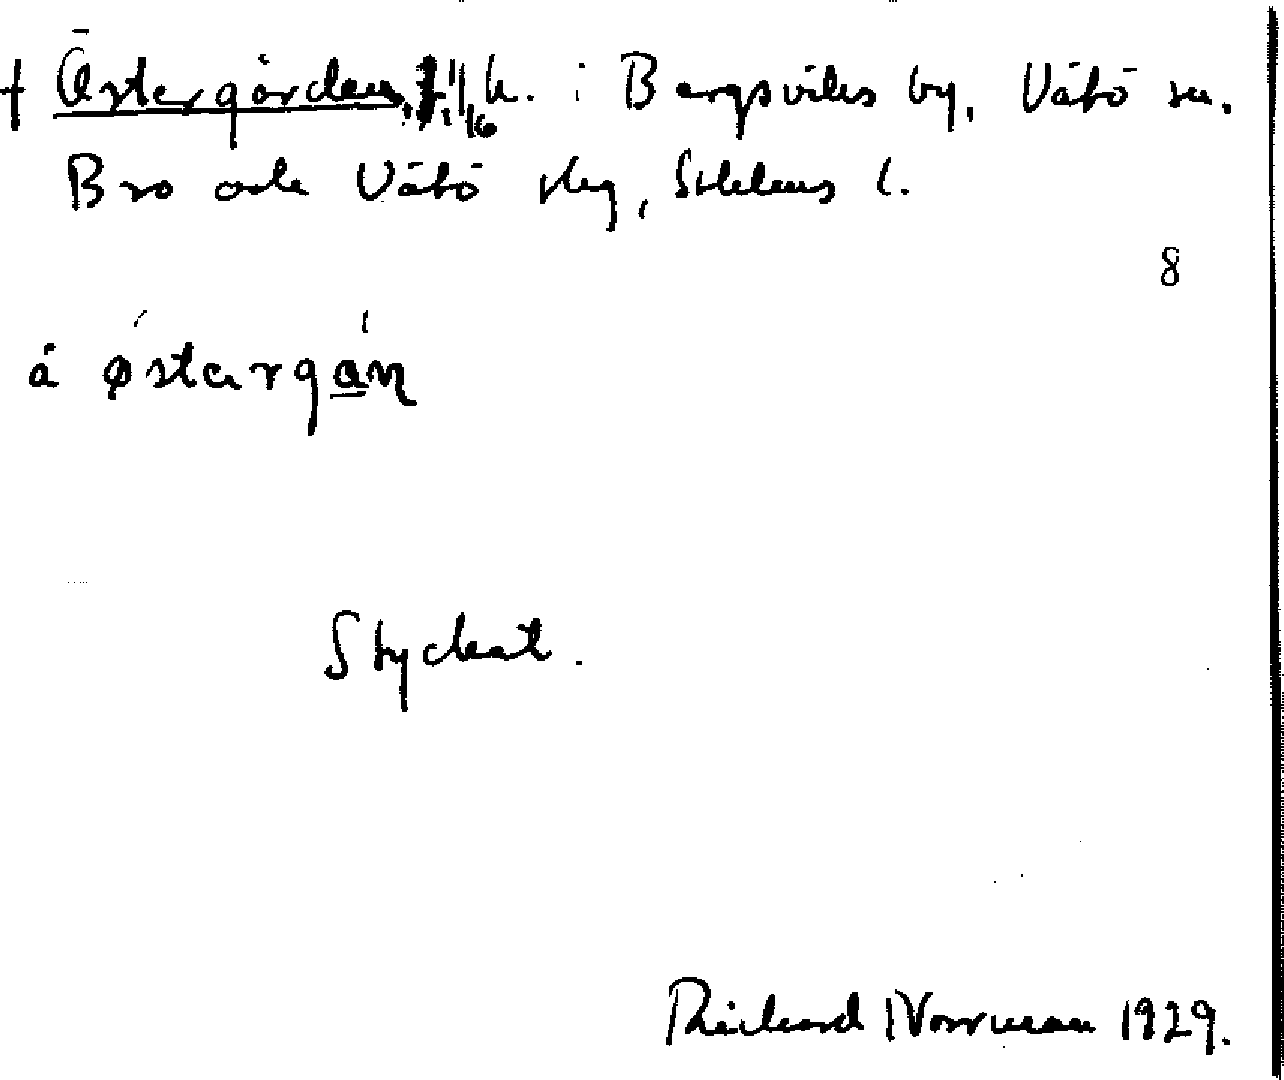 † Östergården, f. 1 1/16 h. i Bergsvikens by, Vätö sn.
Bro och Vätö skg, Sthlms l.
8
å østargán
Styckat.
Richard Norrman 1929.